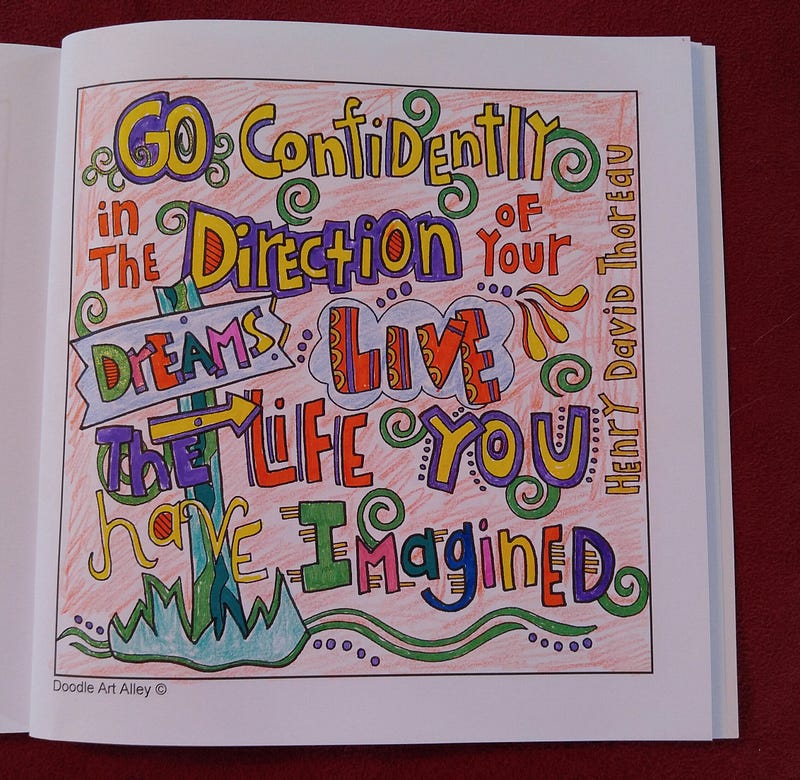 Go Confidently
in The Direction of Your
Dreams Live
The Life You
have Imagined
Henry David Thoreau
Doodle Art Alley ©